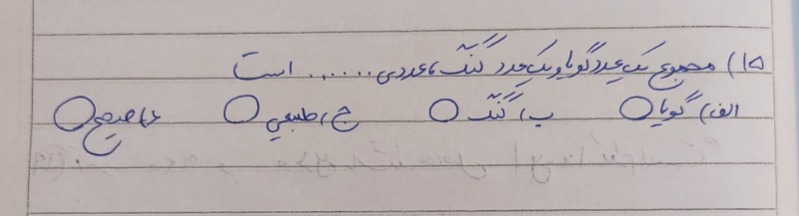 ۱۵) مجموع یک عدد گویا و یک عدد گنگ، عددی ...... است
الف) گویا ب) گنگ ج) طبیعی د) صحیح